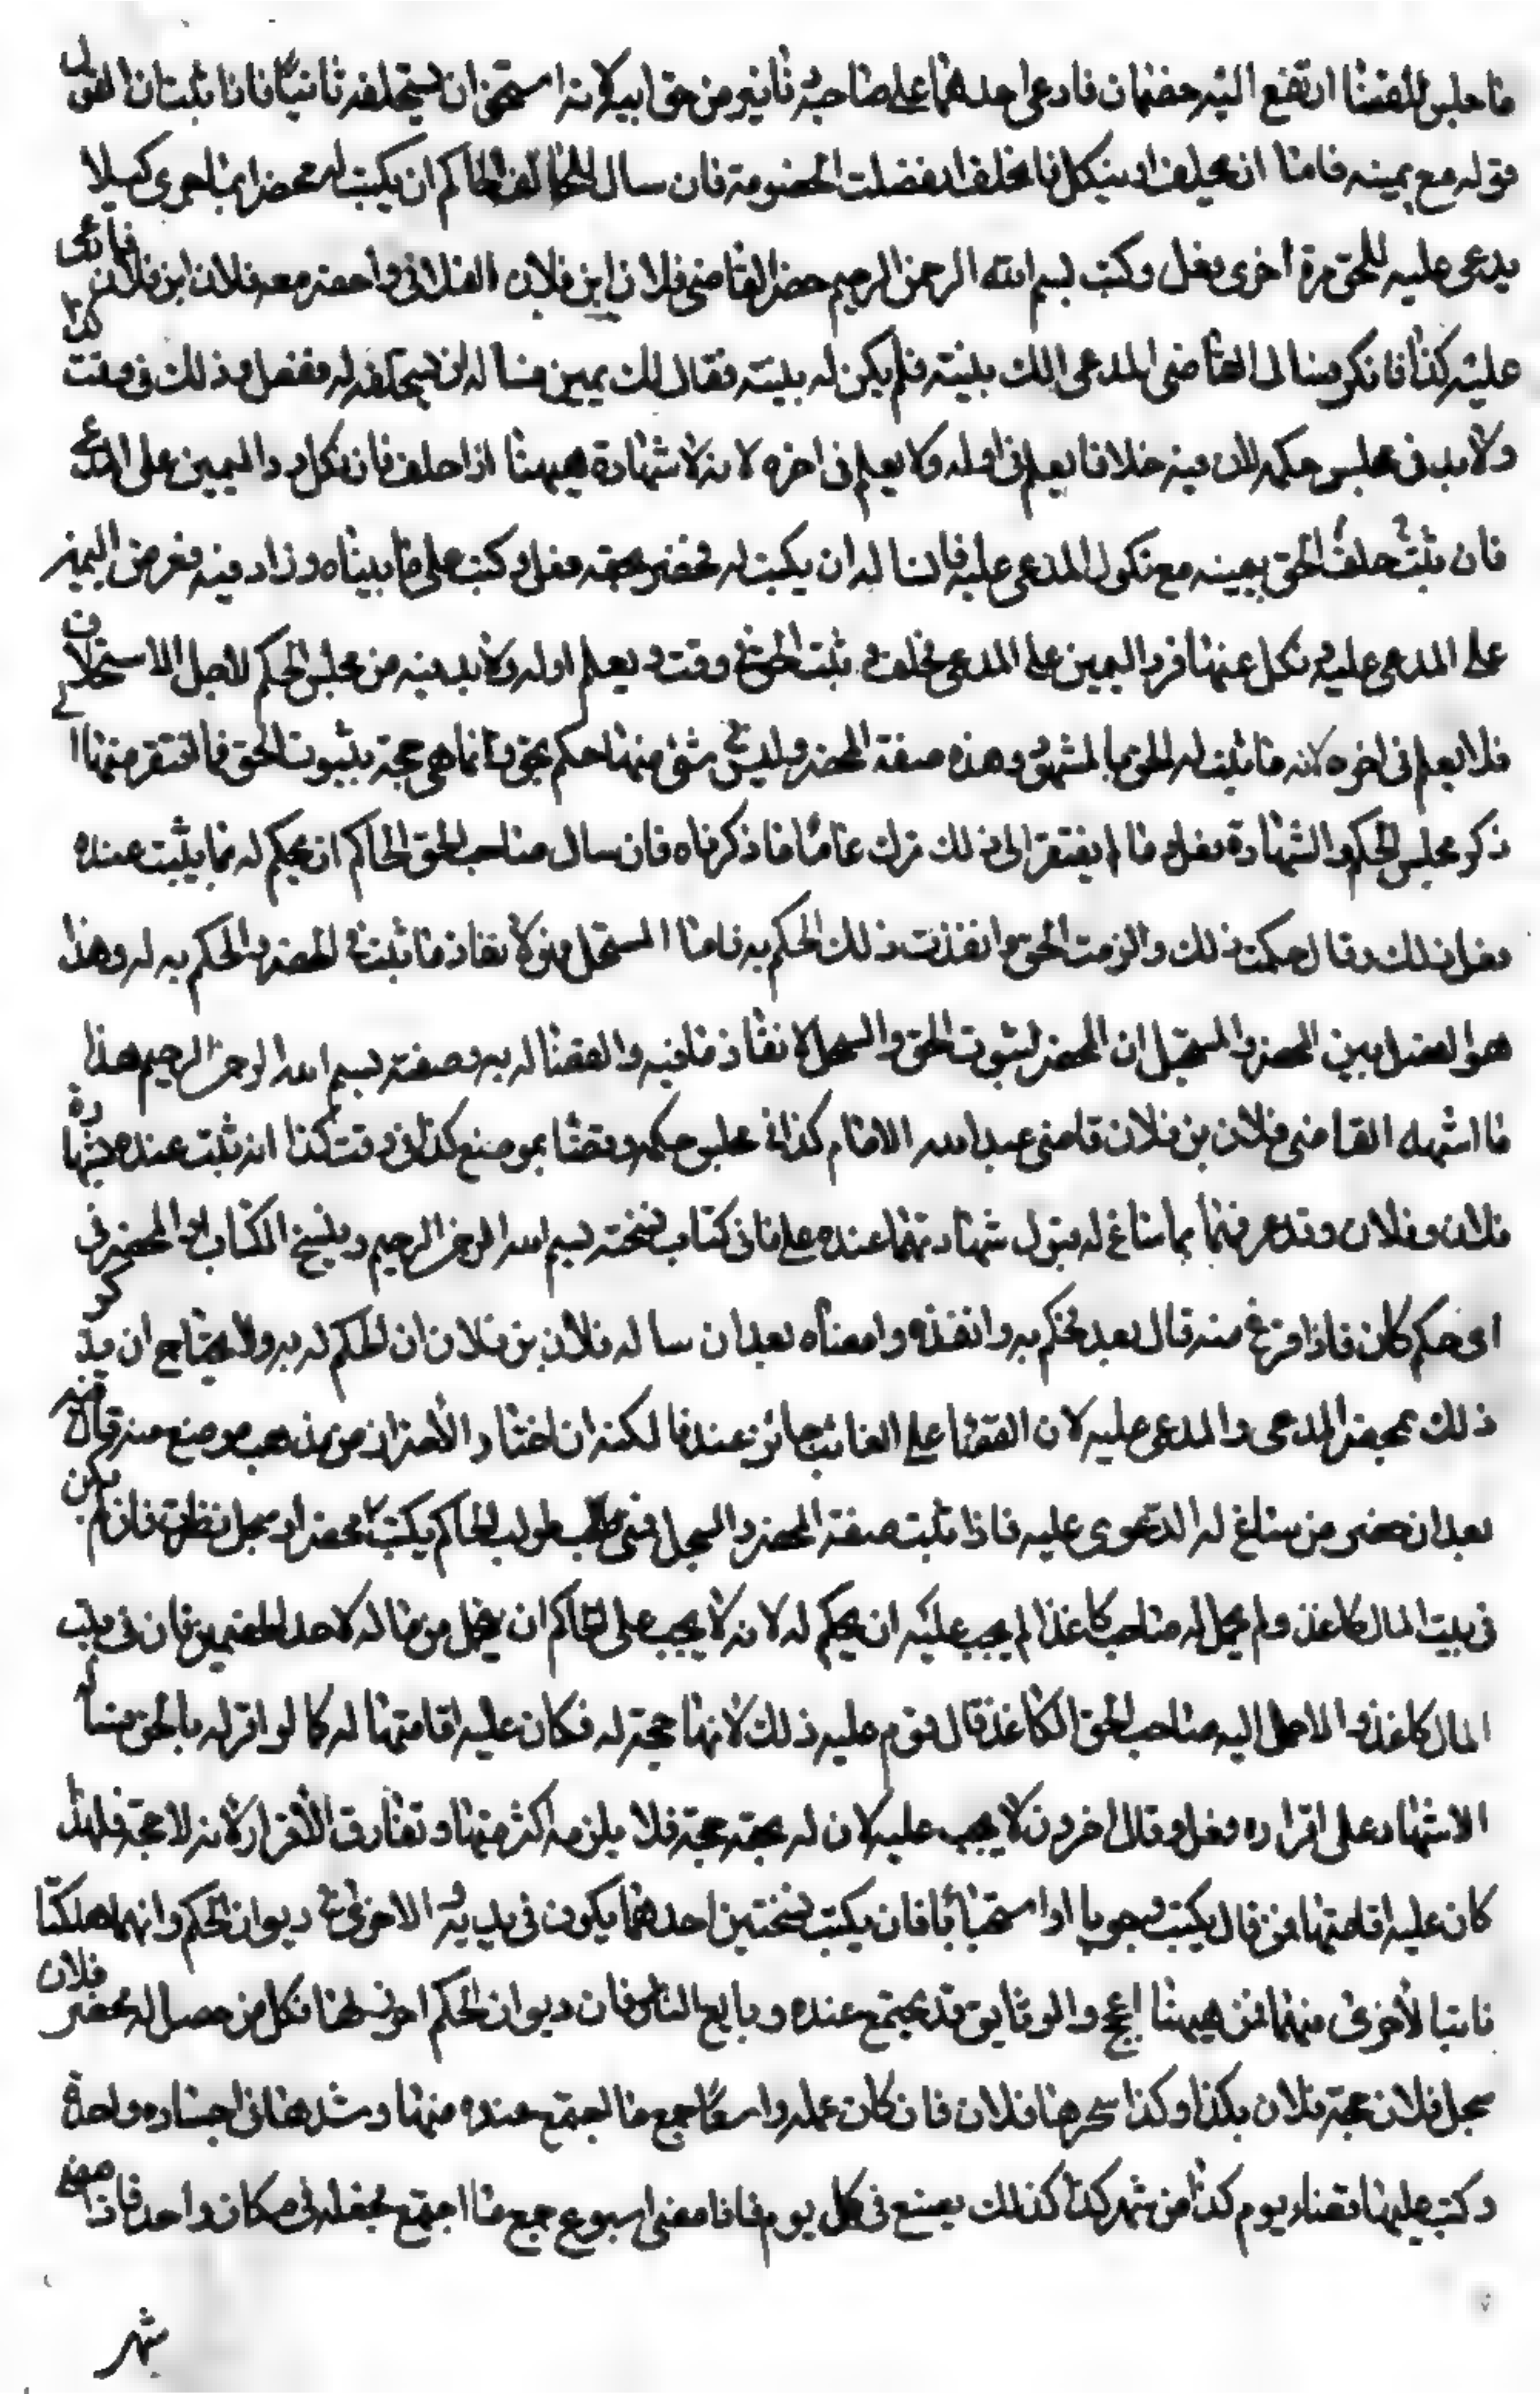 ما جلس للقضا ارتفع اليه خصمان فادعى احدهما على صاحبه من حق ابيه لانه ان يستحلفه ثانيا فاذا ثبت ان القول
قوله مع يمينه فاما ان يحلف او ينكل فان حلف انفصلت الخصومة فان سال الحالف الحاكم ان يكتب له محضرا بما جرى كيلا
يدعى عليه للحق مرة اخرى فعل وكتب بسم الله الرحمن الرحيم حضر القاضي فلان ابن فلان الفلاني واحضر معه فلان ابن فلان فادعى
عليه كذا فانكر فسال القاضي المدعى الك بينة فلم يكن له بينة فقال لك يمينه فساله ان يستحلفه له ففعل وذلك في وقت كذا
ولا بد في مجلس حكمه لان فيه خلافا يعلم في اوله ولا يعلم في اخره لانه لا شهادة هيهنا اذا حلف فان نكل رد اليمين على المدعى
فان حلف ثبت الحق بيمينه مع نكول المدعى عليه فان ساله ان يكتب له محضر بحجته فعل وكتب على ما بيناه وزاد فيه فعرض اليمين
على المدعى عليه ونكل عنها فرد اليمين على المدعى فحلف و ثبت الحق في وقت و يعلم اوله ولا بد فيه من مجلس الحكم لاجل الاستحلاف
فلا يعلم في اخره لانه ما ثبت له الحق بالشهود وهذه صفة المحضر وليس في شئ منها حكم بحق وانما هي حجة بثبوت الحق فما افتقر منها الى
ذكر مجلس الحكم والشهادة فعل وما لم يفتقر الى ذلك ترك على ما ذكرناه فان سال صاحب الحق الحاكم ان يحكم له بما يثبت عنده
فعل ذلك وقال حكمت بذلك والزمت الحق وانفذت ذلك الحكم به فاما السجل فهو لانفاذ ما ثبت في المحضر والحكم به له وهذا
هو الفصل بين المحضر والسجل ان المحضر لثبوت الحق والسجل لانفاذ ما فيه والقضا له به وصفته بسم الله الرحمن الرحيم هذا
ما اشهد القاضي فلان بن فلان قاضي عبد الله الامام كذا في مجلس حكمه وقضا بموضع كذا في وقت كذا انه ثبت عنده بشهادة
فلان وفلان وقد عرفهما بما ساغ له قبول شهادتهما عنده على ما في كتاب نسخته بسم الله الرحمن الرحيم وينسخ الكتاب او المحضر في
اى حكم كان فاذا فرغ منه قال بعد فحكم به وانفذه وامضاه بعد ان ساله فلان بن فلان ان الحكم له به ولا يحتاج ان يذكر
ذلك بمحضر المدعى والمدعى عليه لان القضا على الغائب جائز عندنا لكنه ان اختار الاحتراز من مذهب من منع منه قال فيه
بعد ان حضر من ساغ له الدعوى عليه فاذا ثبت صفة المحضر والسجل فمتى طولب الحاكم يكتب محضر او سجل نظرت فان لم يكن
في بيت المال كاغذ ولم يحمل له صاحب كاغذا لم يجب عليه ان يحكم له لانه لا يجب على الحاكم ان يحمل من ماله لاحد الخصمين فان في بيت
المال كاغذ والا حمل اليه صاحب الحق الكاغذ قال قوم عليه ذلك لانها حجة له فكان عليه اقامتها له كما لو اقر له بالحق فساله
الاشهاد على اقراره فعل وقال اخرون لا يجب عليه لان له بحقه حجة فلا يلزمه اكثر منها وتفارق الاقرار لانه لا حجة فلهذا
كان عليه اقامتها فمن قال يكتب وجوبا او استحبابا فان يكتب نسختين احدهما يكون في يديه و الاخرى في ديوان الحكم وانهما هلكتا
نابتا لاخرى منهما فمن هيهنا الحجج والوثايق قد يجتمع عنده ودايع الناس فان ديوان الحكم احرز لها فكل من حصل له محضر فلان
سجل فلان حجة فلان بكذا وكذا فلان فان كان عمله واسعا جمع ما اجتمع عنده منها وشدها في واحدة
وكتب عليها قضاء يوم كذا من شهر كذا كذلك يصنع في كل يوم فاذا مضى اسبوع جمع ما اجتمع فجعله في مكان واحد فاذا مضى
شهر